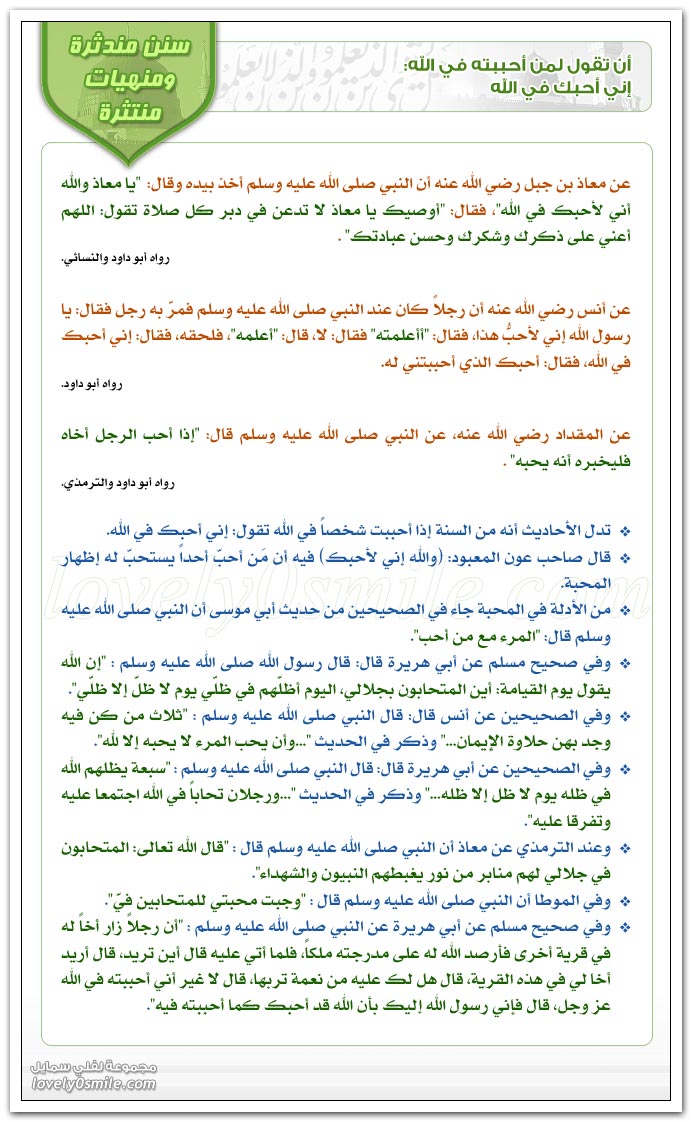 سنن مندثرة
ومنهيات
منتثرة
أن تقول لمن أحببته في الله:
إني أحبك في الله
عن معاذ بن جبل رضي الله عنه أن النبي صلى الله عليه وسلم أخذ بيده وقال: "يا معاذ والله
أني لأحبك في الله"، فقال: "أوصيك يا معاذ لا تدعن في دبر كل صلاة تقول: اللهم
أعني على ذكرك وشكرك وحسن عبادتك" .
رواه أبو داود والنسائي.
عن أنس رضي الله عنه أن رجلاً كان عند النبي صلى الله عليه وسلم فمرّ به رجل فقال: يا
رسول الله إني لأحبُّ هذا، فقال: "أأعلمته" فقال: لا، قال: "أعلمه"، فلحقه، فقال: إني أحبك
في الله، فقال: أحبك الذي أحببتني له.
رواه أبو داود.
عن المقداد رضي الله عنه، عن النبي صلى الله عليه وسلم قال: "إذا أحب الرجل أخاه
فليخبره أنه يحبه" .
رواه أبو داود والترمذي.
❖ تدل الأحاديث أنه من السنة إذا أحببت شخصاً في الله تقول: إني أحبك في الله.
❖ قال صاحب عون المعبود: (والله إني لأحبك) فيه أن مَن أحبّ أحداً يستحبّ له إظهار
المحبة.
❖ من الأدلة في المحبة جاء في الصحيحين من حديث أبي موسى أن النبي صلى الله عليه
وسلم قال: "المرء مع من أحب".
❖ وفي صحيح مسلم عن أبي هريرة قال: قال رسول الله صلى الله عليه وسلم : "إن الله
يقول يوم القيامة: أين المتحابون بجلالي، اليوم أظلّهم في ظلّي يوم لا ظلّ إلا ظلّي".
❖ وفي الصحيحين عن أنس قال: قال النبي صلى الله عليه وسلم : "ثلاث من كن فيه
وجد بهن حلاوة الإيمان..." وذكر في الحديث "...وأن يحب المرء لا يحبه إلا لله".
❖ وفي الصحيحين عن أبي هريرة قال: قال النبي صلى الله عليه وسلم : "سبعة يظلهم الله
في ظله يوم لا ظل إلا ظله..." وذكر في الحديث "...ورجلان تحاباً في الله اجتمعا عليه
وتفرقا عليه".
❖ وعند الترمذي عن معاذ أن النبي صلى الله عليه وسلم قال : "قال الله تعالى: المتحابون
في جلالي لهم منابر من نور يغبطهم النبيون والشهداء".
❖ وفي الموطا أن النبي صلى الله عليه وسلم قال : "وجبت محبتي للمتحابين فيّ".
❖ وفي صحيح مسلم عن أبي هريرة عن النبي صلى الله عليه وسلم : "أن رجلاً زار أخاً له
في قرية أخرى فأرصد الله له على مدرجته ملكاً، فلما أتي عليه قال أين تريد، قال أريد
أخا لي في هذه القرية، قال هل لك عليه من نعمة تربها، قال لا غير أني أحببته في الله
عز وجل، قال فإني رسول الله إليك بأن الله قد أحبك كما أحببته فيه".
lovely0smile.com
مجموعة لفلي سمايل
lovely0smile.com